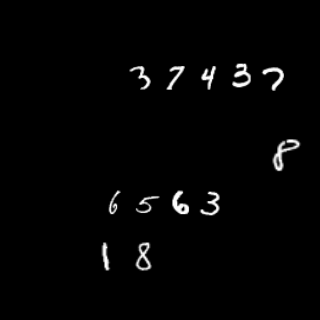 3 7 4 3 7
8
6 5 6 3
1 8